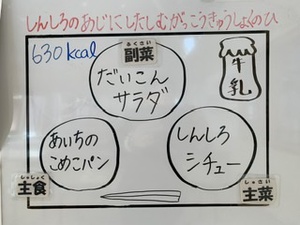 しんしろのあじにしたしむがっこうきゅうしょくのひ
630kcal
ふくさい
副菜
だいこん
サラダ
牛乳
あいちの
こめこパン
しんしろ
シチュー
しゅしょく
主食
しゅさい
主菜